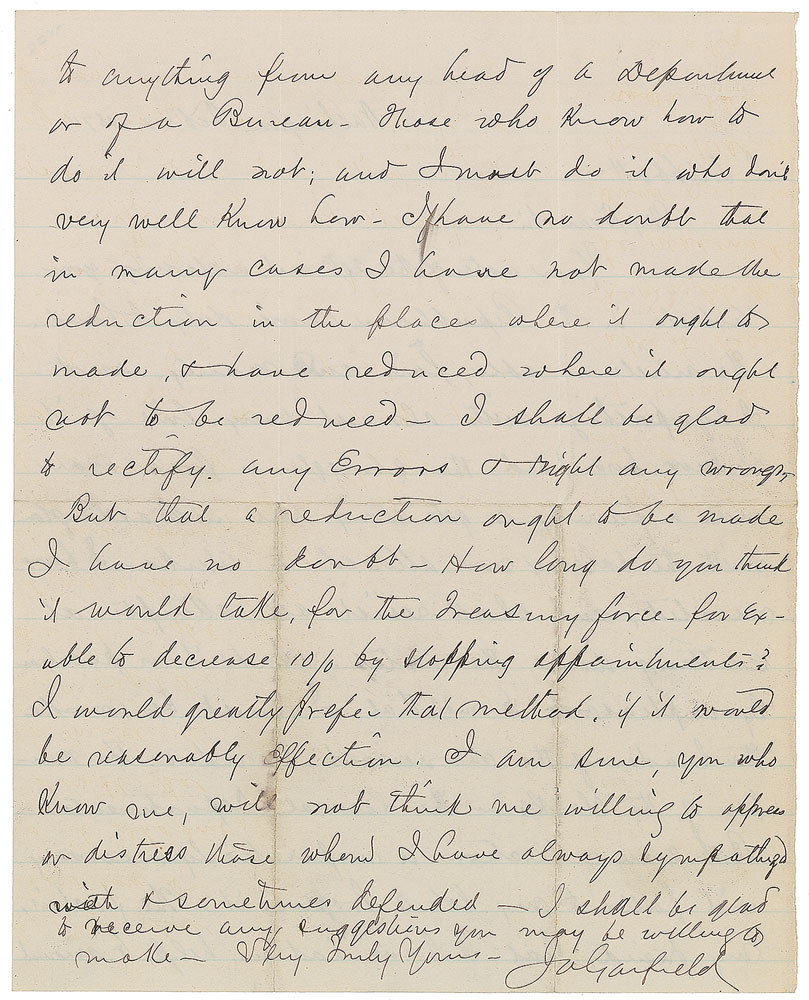 to anything from any head of a Department
or of a Bureau - Those who know how to
do it will not; and I must do it who don't
very well know how - I have no doubt that
in many cases I have not made the
reduction in the places where it ought to
made, & have reduced where it ought
not to be reduced - I shall be glad
to rectify any Errors & right any wrongs,
But that a reduction ought to be made
I have no doubt - How long do you think
it would take, for the Treasury force - for Ex -
able to decrease 10% by stopping appointments?
I would greatly prefer that method, if it would
be reasonably effective. I am sure, you who
know me, will not think me willing to oppress
or distress those whom I have always sympathized
with & sometimes defended - I shall be glad
to receive any suggestions you may be willing to
make - Very Truly Yours -
JAGarfield